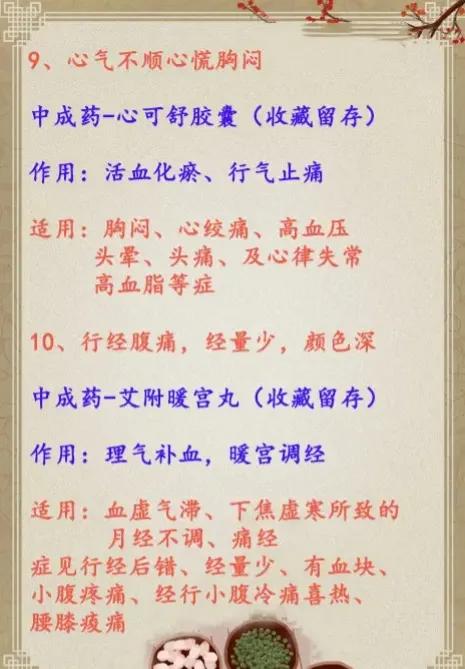 9、心气不顺心慌胸闷
中成药-心可舒胶囊（收藏留存）
作用：活血化瘀、行气止痛
适用：胸闷、心绞痛、高血压
头晕、头痛、及心律失常
高血脂等症
10、行经腹痛，经量少，颜色深
中成药-艾附暖宫丸（收藏留存）
作用：理气补血，暖宫调经
适用：血虚气滞、下焦虚寒所致的
月经不调、痛经
症见行经后错、经量少、有血块、
小腹疼痛、经行小腹冷痛喜热、
腰膝痠痛